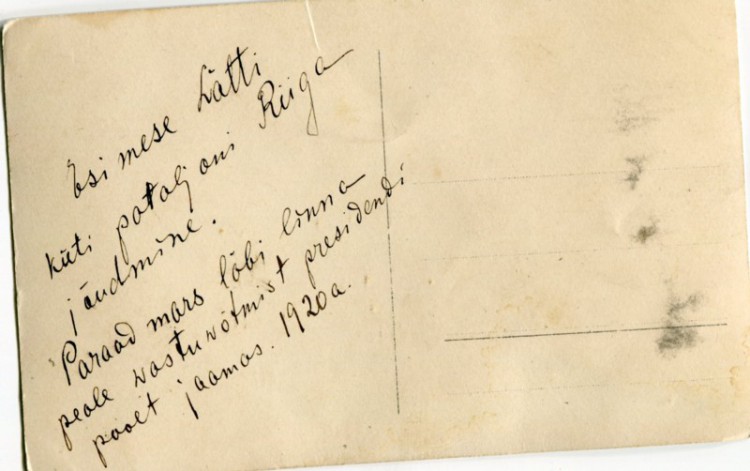 Esimese Lätti
küti pataljoni Riiga
jõudmine.
Paraad mars läbi linna
peale wastuwõtmist presidendi
poolt jaamas. 1920 a.